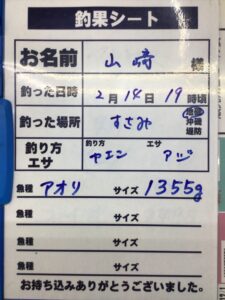 釣果シート
お名前 山﨑 様
釣った日時 2月14日19時頃
釣った場所 すさみ 地磯 沖磯 堤防
釣り方 エサ 釣り方 ヤエン エサ アジ
魚種 アオリ サイズ 1355g
魚種 サイズ
魚種 サイズ
魚種 サイズ
お持ち込みありがとうございました。